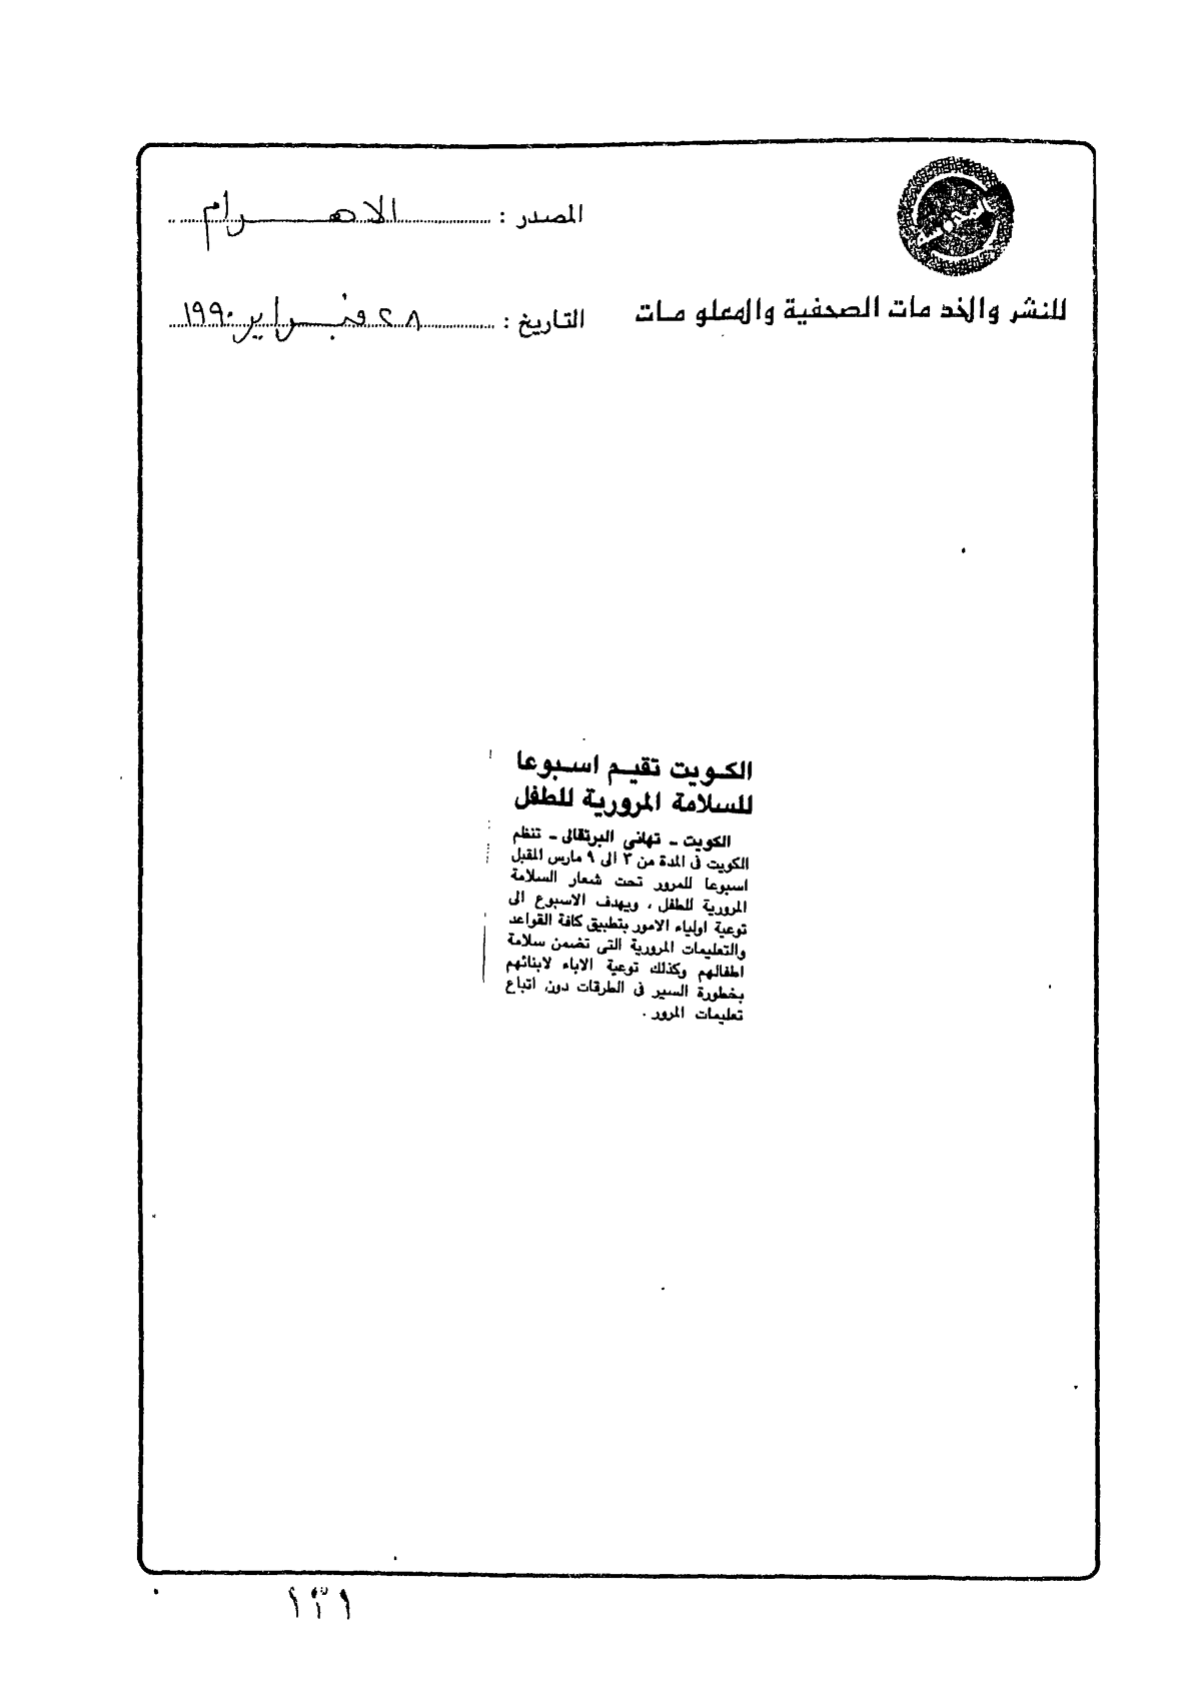 المصدر : الاهرام
للنشر والخدمات الصحفية والمعلومات
التاريخ : ٢٨ فبراير ١٩٩٠
الكويت تقيم اسبوعا
للسلامة المرورية للطفل
الكويت ـ تهانى البرتقالى ـ تنظم
الكويت فى المدة من ٣ الى ٩ مارس المقبل
اسبوعا للمرور تحت شعار السلامة
المرورية للطفل ، ويهدف الاسبوع الى
توعية اولياء الامور بتطبيق كافة القواعد
والتعليمات المرورية التى تضمن سلامة
اطفالهم وكذلك توعية الاباء لابنائهم
بخطورة السير فى الطرقات دون اتباع
تعليمات المرور .